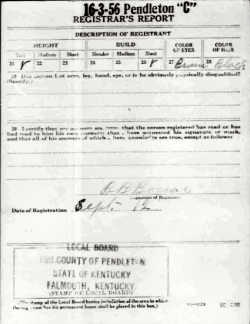 16-3-56 Pendleton "C"
REGISTRAR'S REPORT
DESCRIPTION OF REGISTRANT
HEIGHT BUILD COLOR OF EYES COLOR OF HAIR
Tall Medium Short Slender Medium Stout
21 22 23 24 25 26 27 Brown 28 Black
29 Has person lost arm, leg, hand, eye, or is he obviously physically disqualified?
(Specify.)
30 I certify that my answers are true; that the person registered has read or has
had read to him his own answers; that I have witnessed his signature or mark,
and that all of his answers of which I have knowledge are true, except as follows:
(Signature of Registrar)
Date of Registration Sept. 12
LOCAL BOARD
FOR COUNTY OF PENDLETON
STATE OF KENTUCKY
FALMOUTH, KENTUCKY.
(STAMP OF LOCAL BOARD)
(The stamp of the Local Board having jurisdiction of the area in which
the registrant has his permanent home shall be placed in this box.)